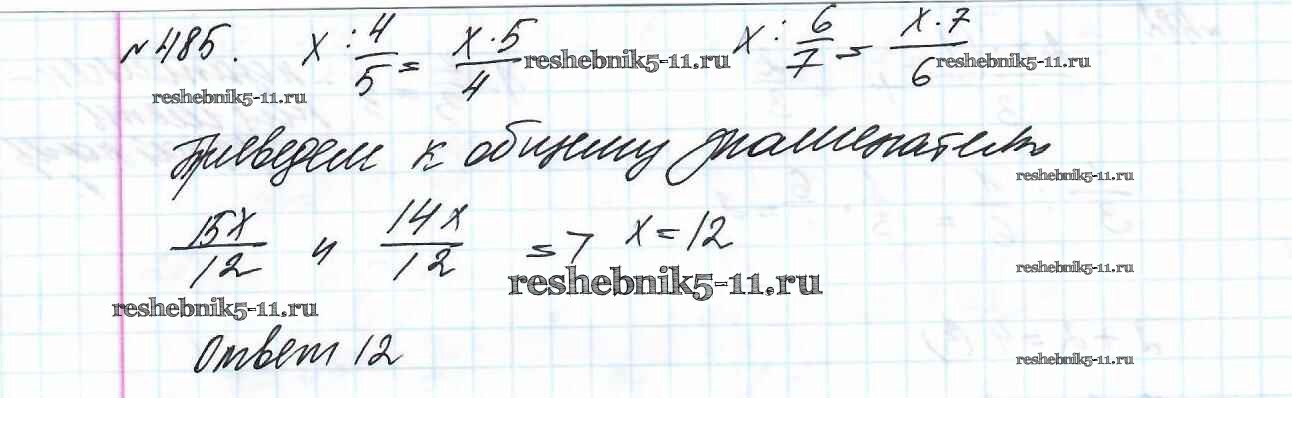 №485. x : 4/5 = x·5/4 reshebnik5-11.ru x : 6/7 = x·7/6 reshebnik5-11.ru
reshebnik5-11.ru
Приведем к общему знаменателю
reshebnik5-11.ru
15x/12 и 14x/12 => x = 12
reshebnik5-11.ru reshebnik5-11.ru
reshebnik5-11.ru
Ответ 12
reshebnik5-11.ru